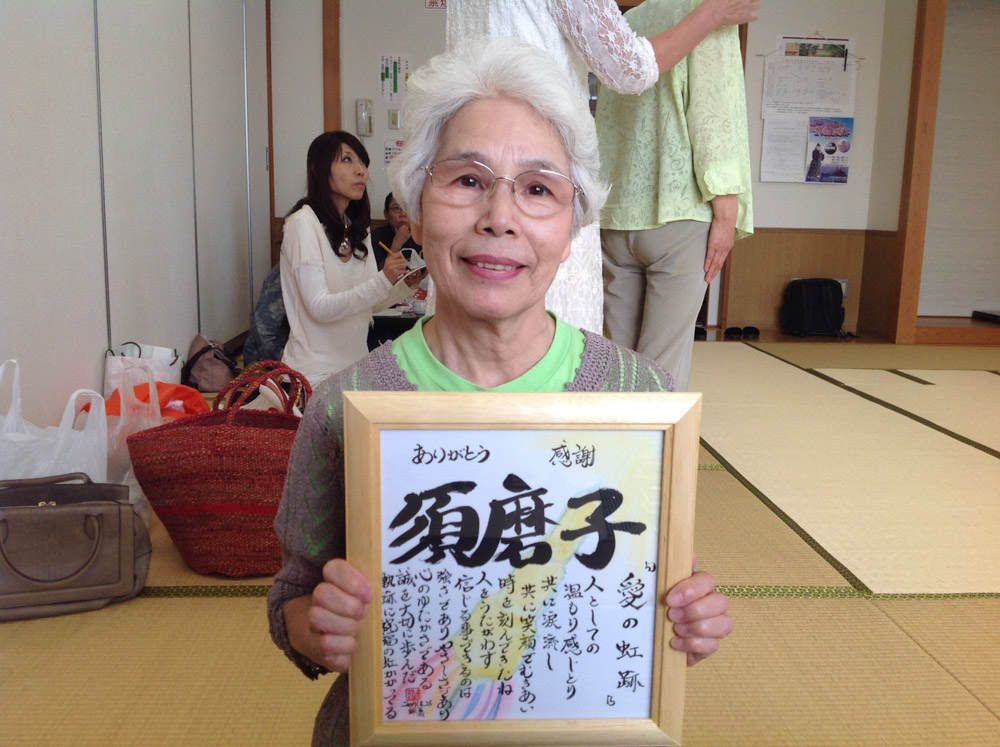 ありがとう
感謝
須磨子
「愛の虹跡」
人としての
温もり感じとり
共に涙流し
共に笑顔でむきあい
時を刻んできたね
人をうたがわず
信じる事できるのは
強さでありやさしさであり
心のゆたかさである
誠を大切に歩んだ
軌跡に祝福の虹かかってる